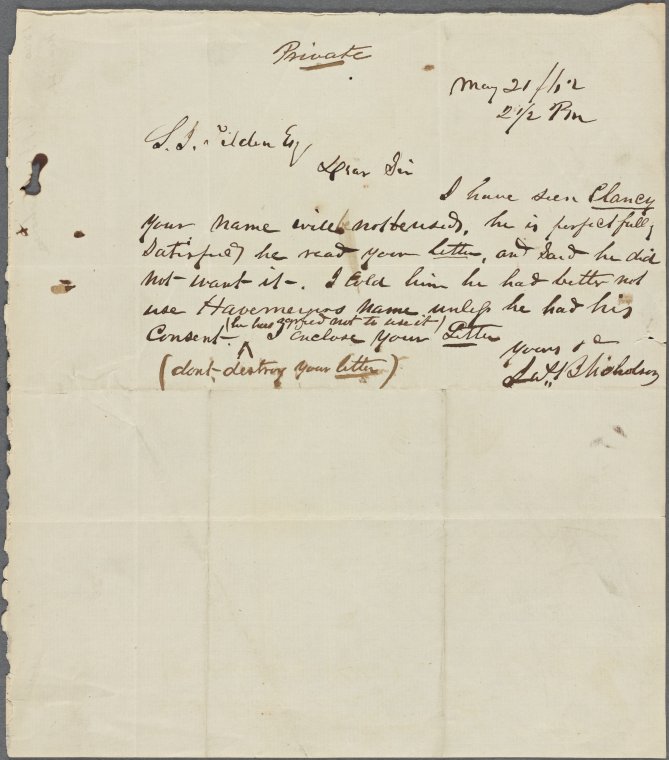 Private
May 21/62
2 1/2 Pm
S. J. Tilden Esq
Dear Sir
I have seen Clancy
your name will not be used, he is perfectfully
Satisfied, he read your letter, and Said he did
not want it. I told him he had better not
use Havemeyers name unless he had his
(he has agreed not to use it)
Consent. I enclose your Letter
yours &c
B Nicholson
(dont destroy your letter)